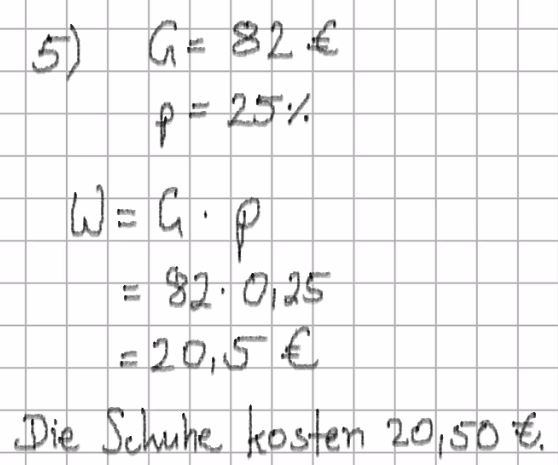 5) G = 82 €
p = 25%
W = G · p
= 82 · 0,25
= 20,5 €
Die Schuhe kosten 20,50 €.